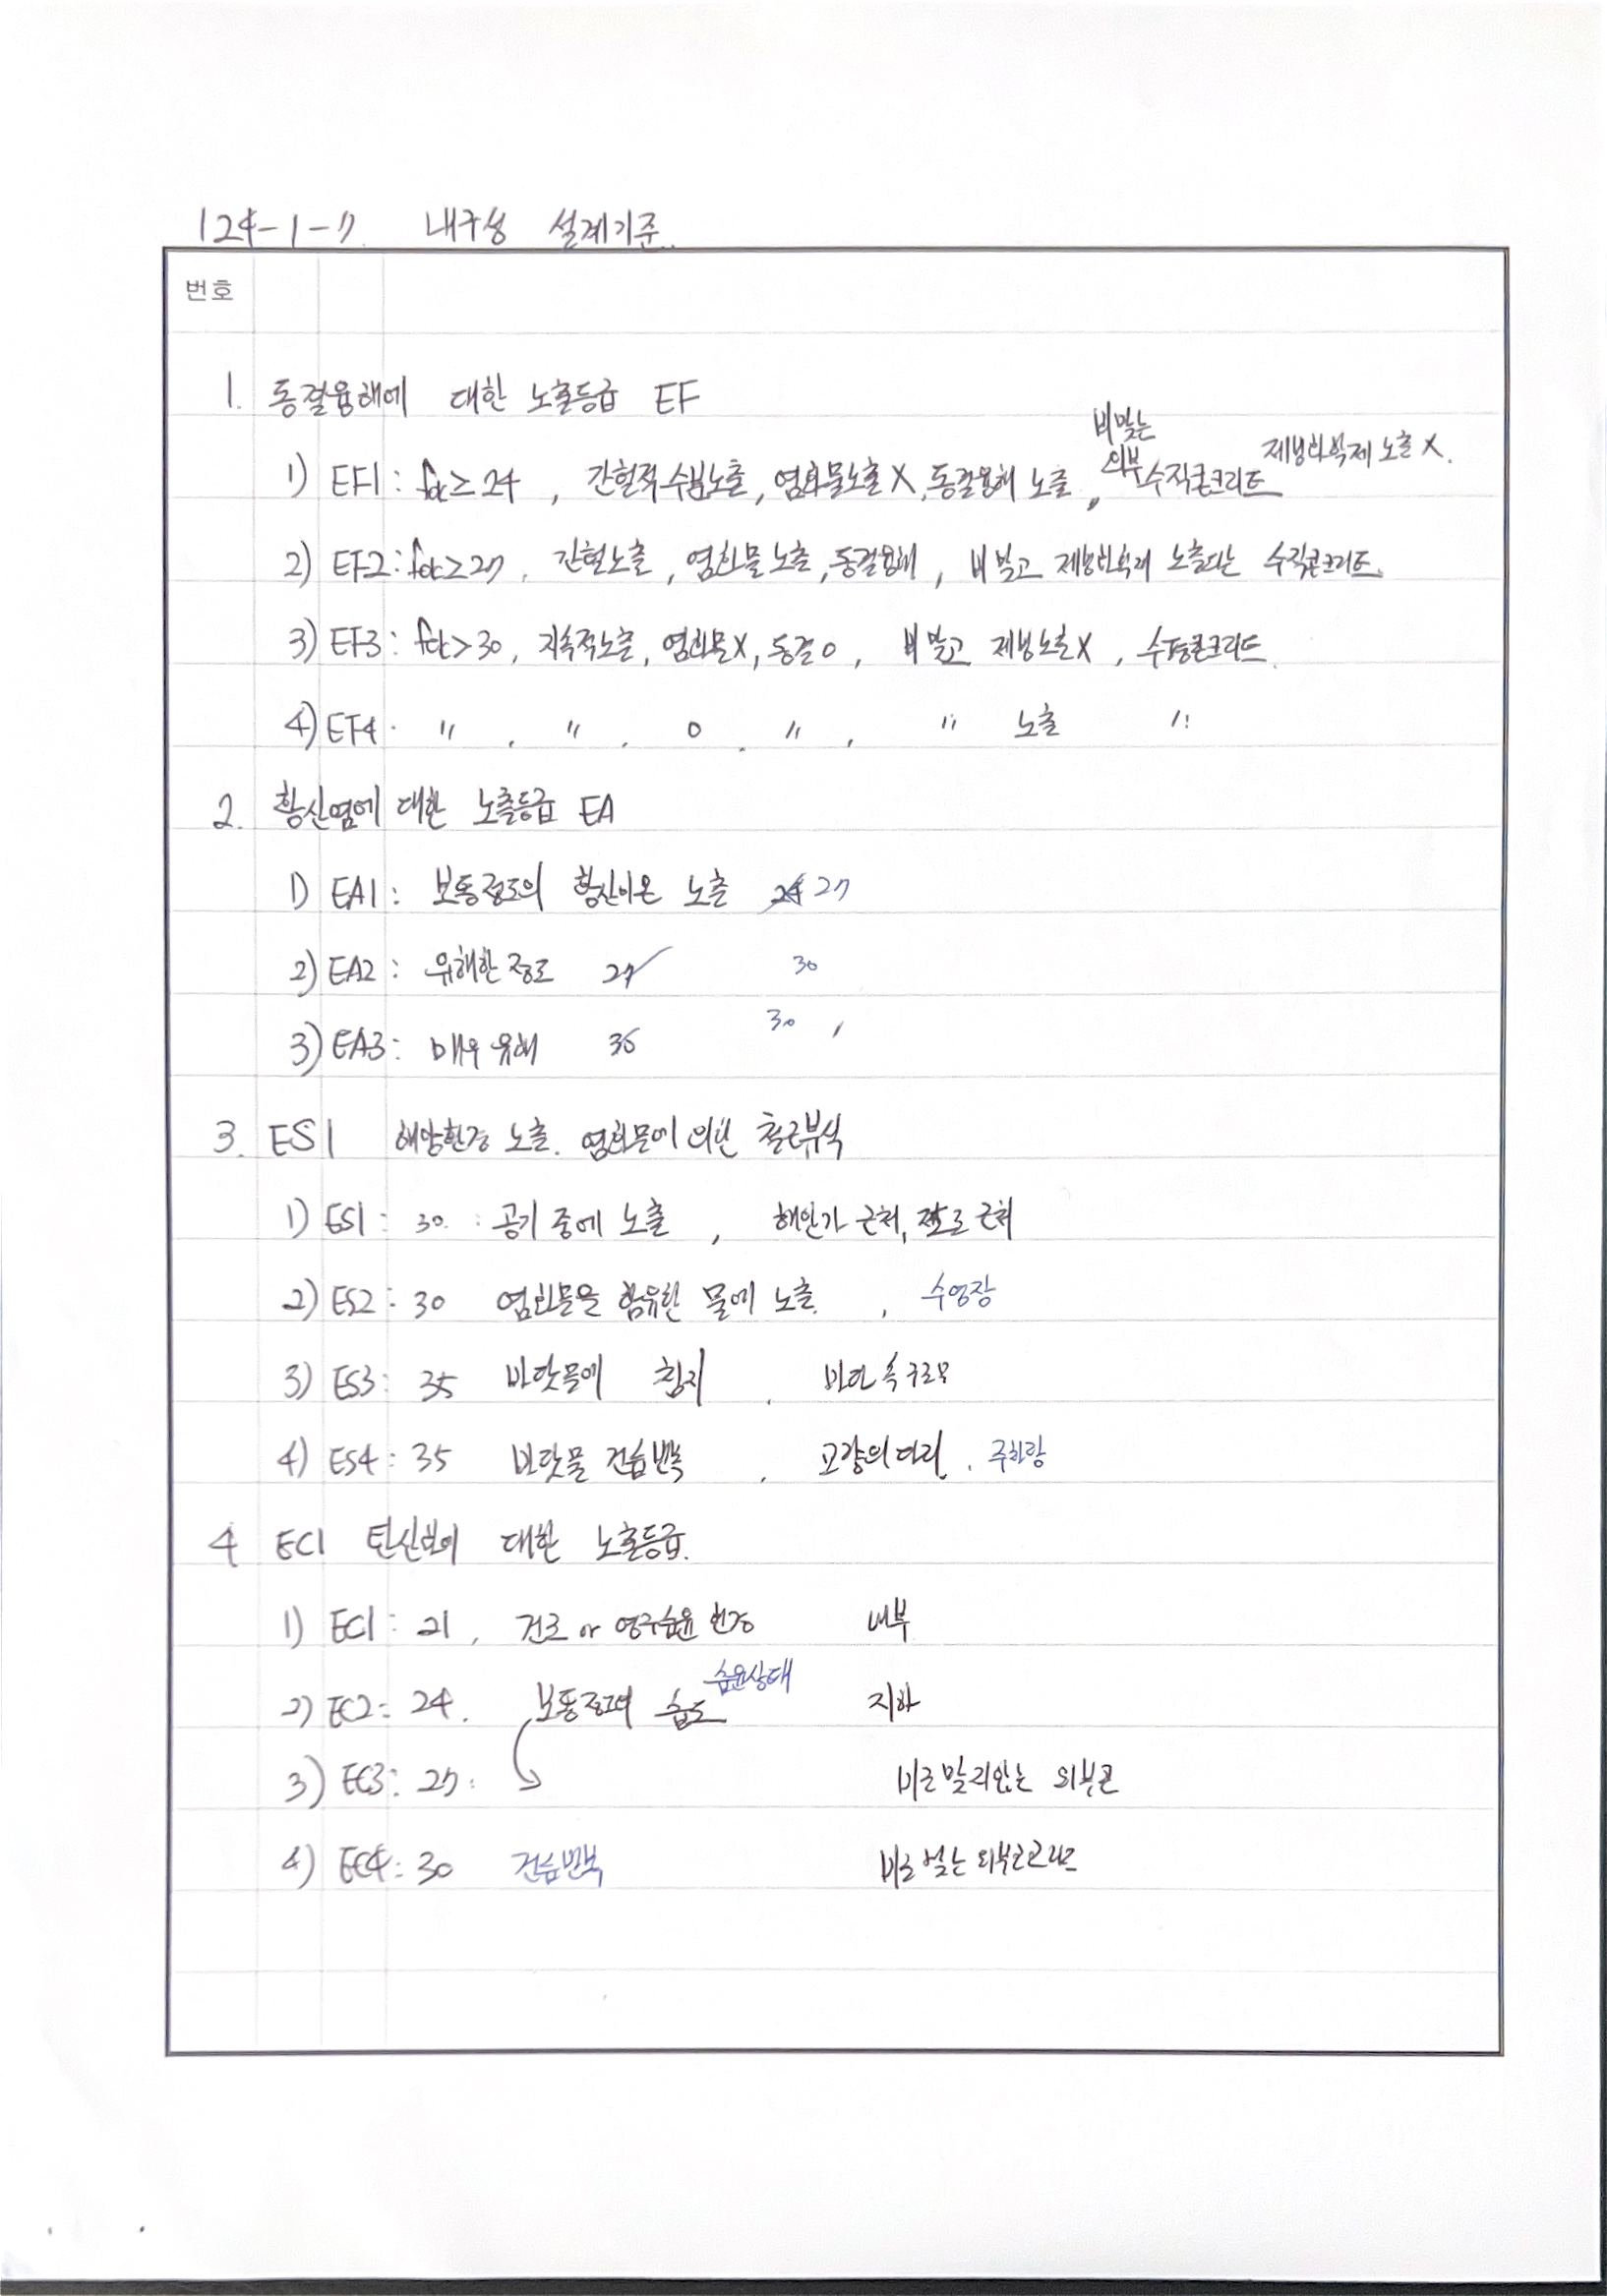 124-1-7. 내구성 설계기준.
번호
1. 동결융해에 대한 노출등급 EF
비맞는
제빙화학제 노출 X.
1) EF1 : fck ≥ 24 , 간헐적 수분노출, 염화물노출 X, 동결융해 노출 , 외부 수직콘크리트
2) EF2 : fck ≥ 27 , 간헐노출 , 염화물 노출, 동결융해 , 비 맞고 제빙화학제 노출되는 수직콘크리트.
3) EF3 : fck > 30 , 지속적노출, 염화물X, 동결O , 비 맞고 제빙노출X , 수평콘크리트.
4) EF4 · 〃 , 〃 , O , 〃 , 〃 노출 〃
2. 황산염에 대한 노출등급 EA
1) EA1 : 보통정도의 황산이온 노출 24 27
2) EA2 : 유해한 정도 27 30
3) EA3 : 매우 유해 35 30 ,
3. ES1 해양환경 노출. 염화물에 의한 철근부식
1) ES1 : 30 : 공기 중에 노출 , 해안가 근처, 도로 근처
2) ES2 : 30 염화물을 함유한 물에 노출. , 수영장
3) ES3 : 35 바닷물에 침지 , 바다 속 구조물
4) ES4 : 35 바닷물 건습반복 , 교량의 다리 , 주차장
4 EC1 탄산화에 대한 노출등급.
1) EC1 : 21 , 건조 or 영구습윤 환경 내부
습윤상태
2) EC2 : 24 . 보통정도의 습도 지하
3) EC3 : 27 : 비로 맞지않는 외부콘
4) EC4 : 30 건습반복 비로 맞는 외부콘크리트